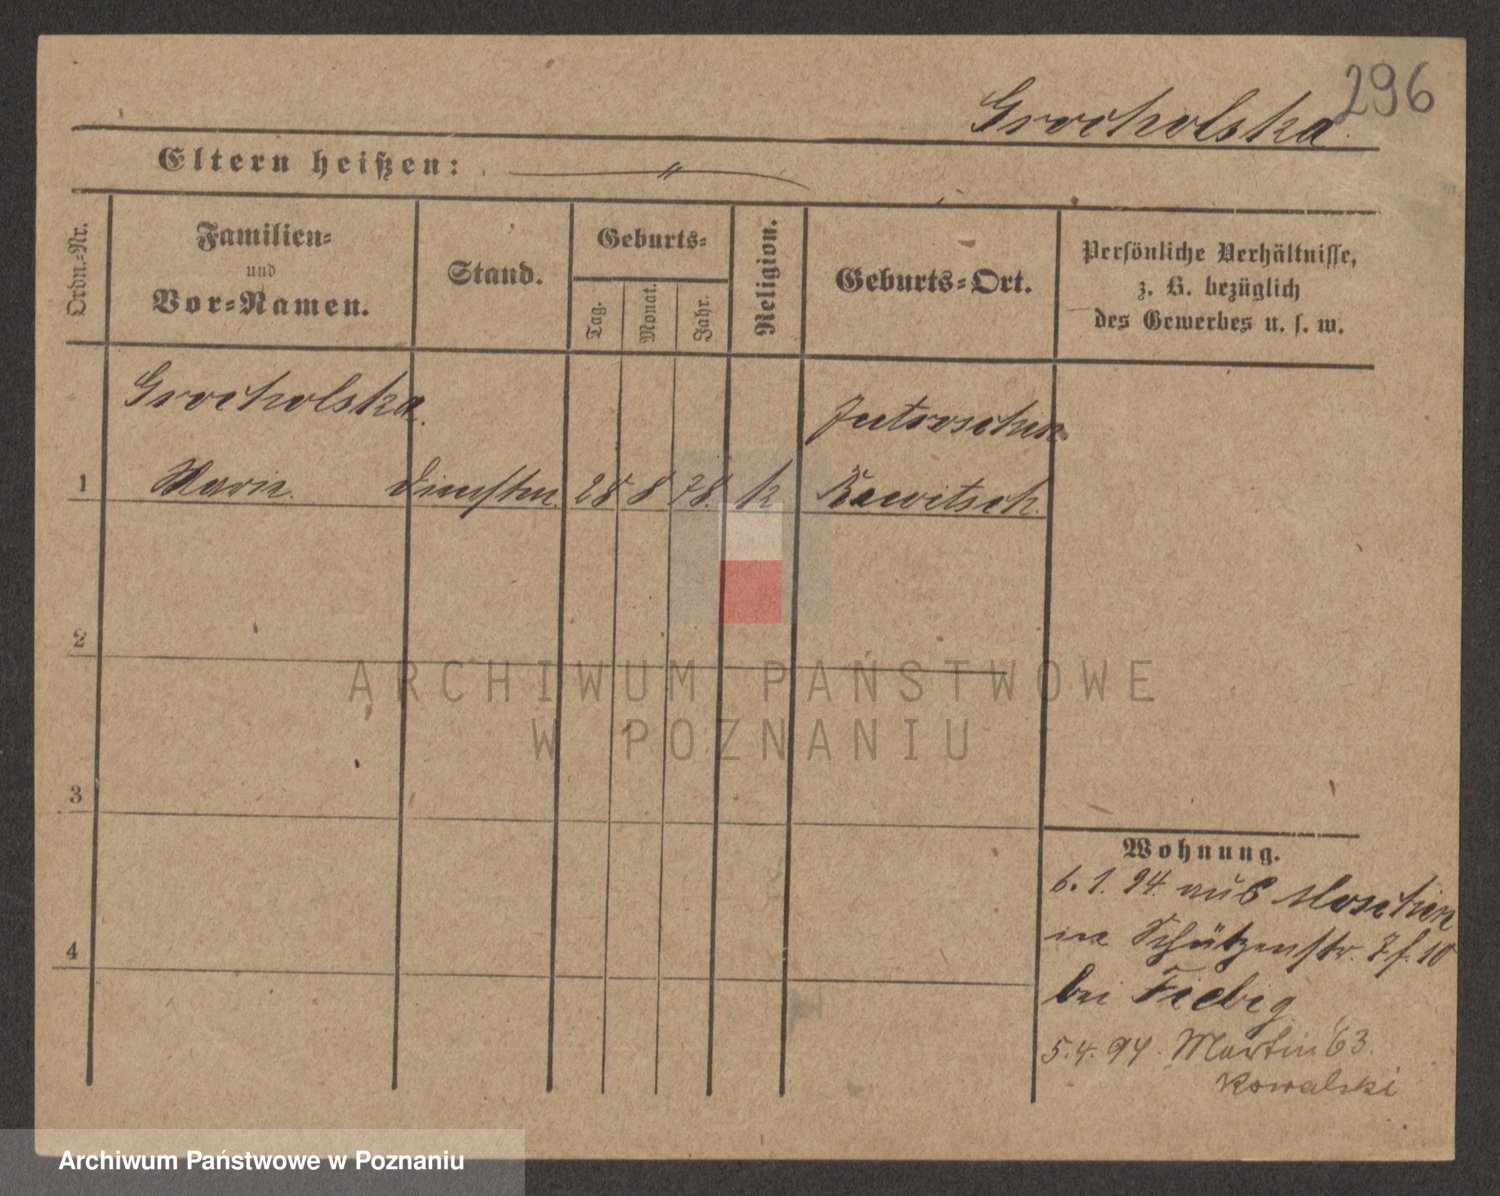 296
Grocholska
Eltern heißen: "
Ordn.-Nr.
Familien-
und
Vor-Namen.
Stand.
Geburts-
Tag.
Monat.
Jahr.
Religion.
Geburts-Ort.
Persönliche Verhältnisse,
z. B. bezüglich
des Gewerbes u. s. w.
Grocholska
Jutroschin
1 Marie. 28 8 78. k Rawitsch.
2
3
4
Wohnung.
6. 1. 94. aus Moschin
in Schützenstr. 10
bei Fiebig
5.4.94. Martin 63.
Kowalski
ARCHIWUM PAŃSTWOWE
W POZNANIU
Archiwum Państwowe w Poznaniu